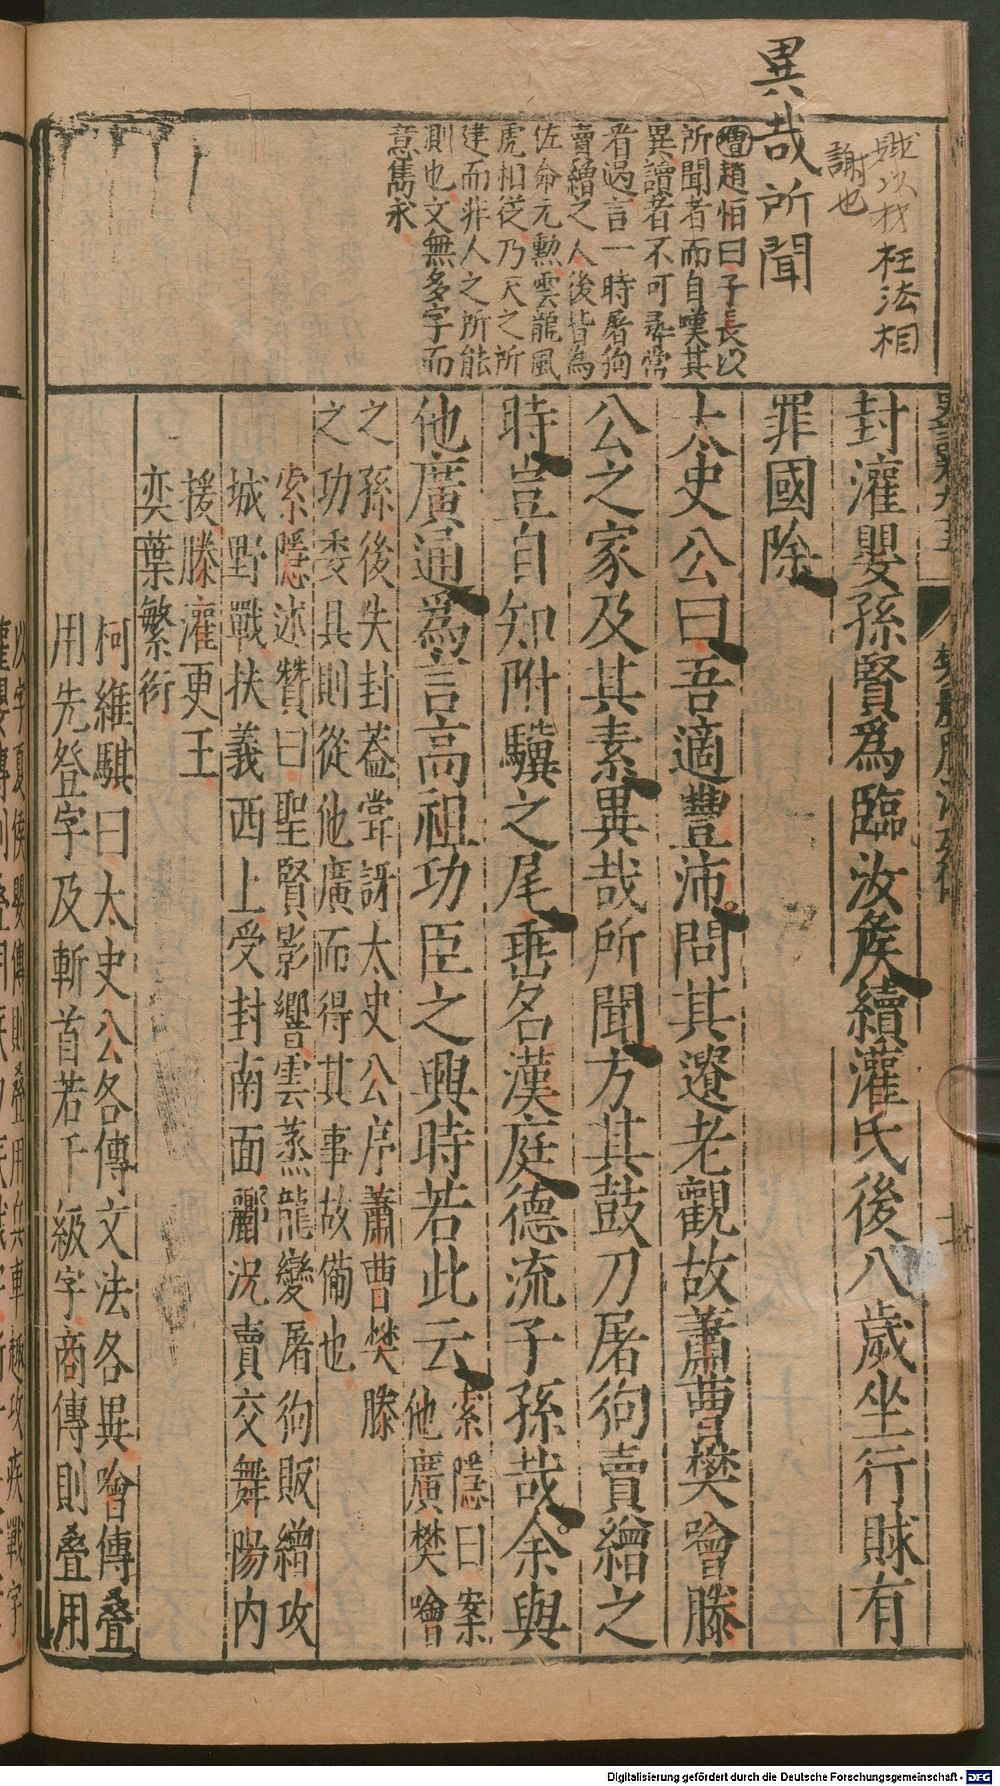 賕以財枉法相
謝也
異哉所聞
增趙怕曰子長以
所聞者而自嘆其
異讀者不可尋常
者過言一時屠狗
賣繒之人後皆為
佐命元勲雲龍風
虎相從乃天之所
建而非人之所能
測也文無多字而
意雋永
封灌嬰孫賢爲臨汝矦續灌氏後八歲坐行賕有
罪國除
太史公曰吾適豐沛問其遺老觀故蕭曹樊噲滕
公之家及其素異哉所聞方其鼓刀屠狗賣繒之
時豈自知附驥之尾垂名漢庭德流子孫哉余與
他廣通爲言高祖功臣之興時若此云索隱曰案
他廣樊噲
之孫後失封葢嘗訝太史公序蕭曹樊滕
之功委具則從他廣而得其事故備也
索隱述贊曰聖賢影響雲蒸龍變屠狗販繒攻
城野戰扶義西上受封南面酈況賣交舞陽內
援滕灌更王
奕葉繁衍
柯維騏曰太史公各傳文法各異噲傳叠
用先登字及斬首若干級字商傳則叠用
以字夏侯嬰傳則叠用以兵車趣攻疾戰字
Digitalisierung gefördert durch die Deutsche Forschungsgemeinschaft - DFG